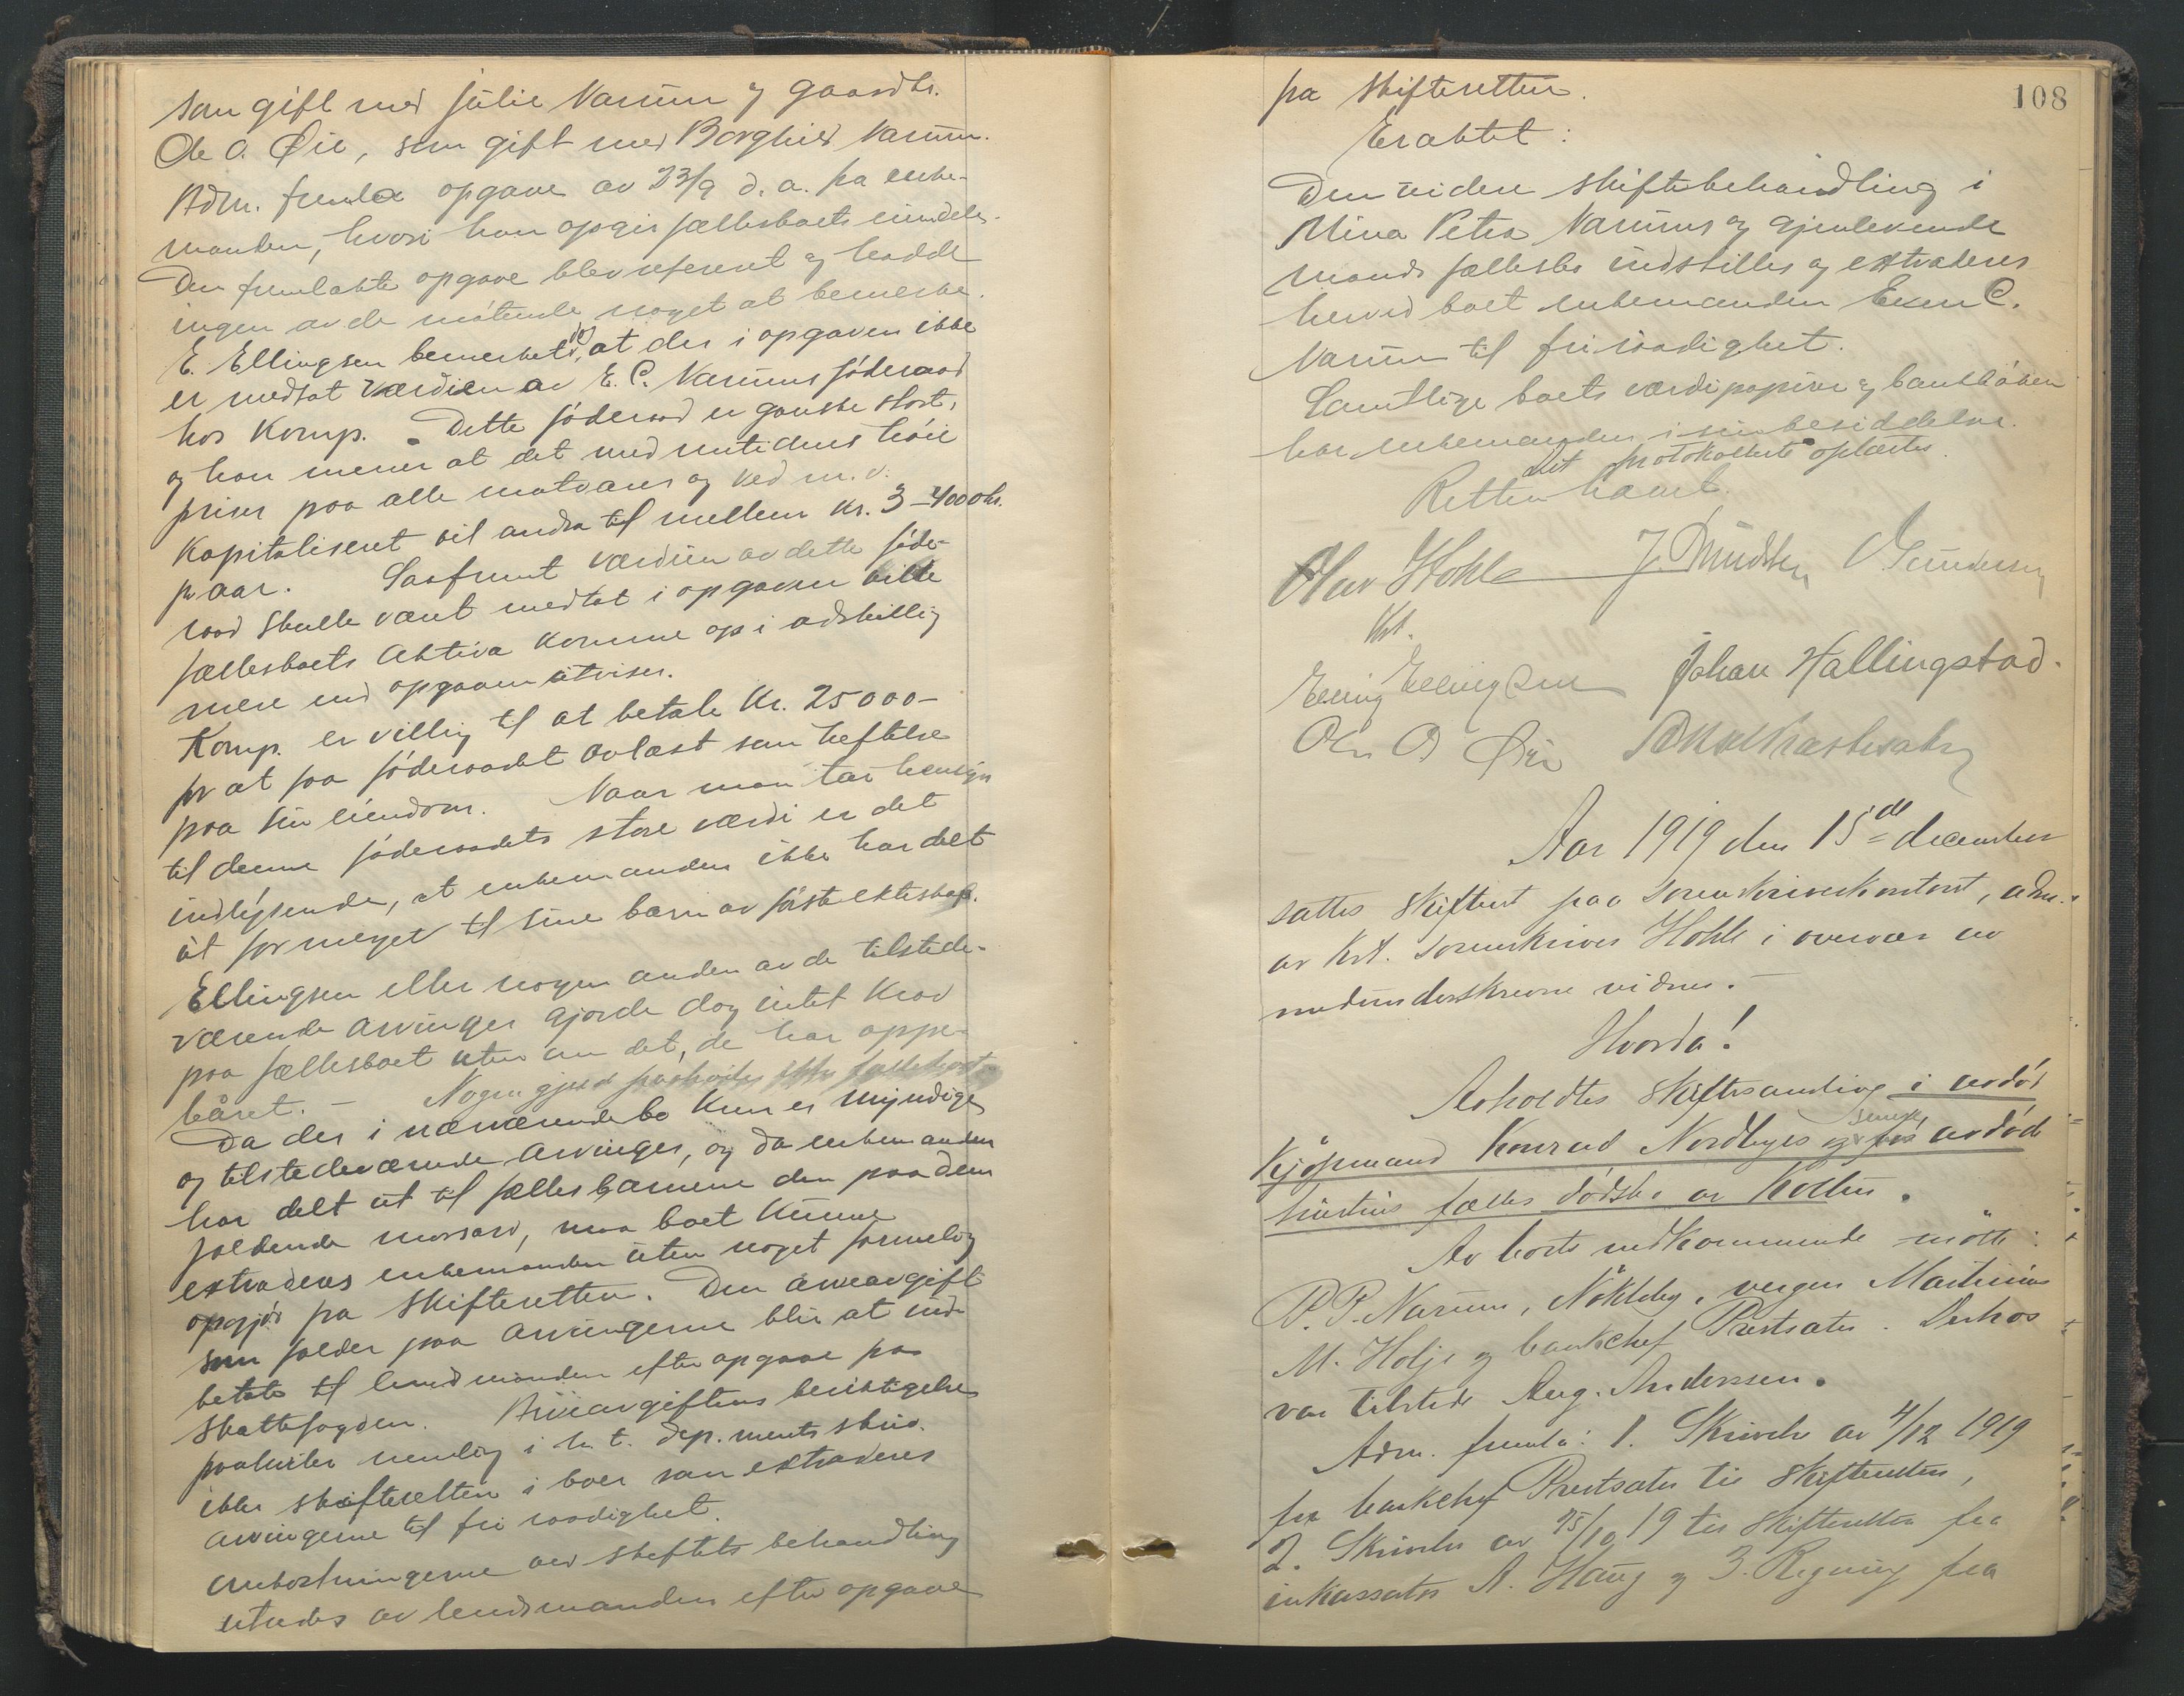 som gift med Julie Narum og gaardbr.
Ole O. Øie, som gift med Borghild Narum.
Adm. fremla opgave av 23/9 d. a. fra enke-
manden, hvori han opgir fællesboets eiendele.
Den fremlakte opgave blev referert og hadde
ingen av de møtende noget at bemerke.
E. Ellingsen bemerket dog, at der i opgaven ikke
er medtat værdien av E. C. Narums føderaad
hos Komp. Dette føderaad er ganske stort,
og han mener at det med nutidens høie
priser paa alle matvarer og ved m. v.
kapitalisert vil andra til mellem kr. 3-4000 kr.
pr aar. Saafremt værdien av dette føde-
raad skulle været medtat i opgaven vilde
fællesboets aktiva komme op i adskillig
mere end opgaven utviser.
Komp. er villig til at betale kr. 25000-
for at faa føderaadet avløst som heftelse
paa sin eiendom. Naar man tar hensyn
til denne føderaadets store værdi er det
indlysende, at enkemanden ikke har delt
ut for meget til sine barn av første ekteskap.
Ellingsen eller nogen anden av de tilstede-
værende arvinger gjorde dog intet krav
paa fællesboet uten om det, de har oppe-
båret. - Nogen gjæld paahviler ikke fællesboet
Da der i nærværende bo kun er myndige
og tilstedeværende arvinger, og da enkemanden
har delt ut til fællesbarnene den paa dem
faldende morsarv, maa boet kunne
extraderes enkemanden uten noget formelig
opgjør fra skifteretten. Den arveavgift
som falder paa arvingerne blir at ind-
betale til lensmanden efter opgave fra
skattefogden. Arveavgiftens berigtigelse
paahviler nemlig i h. t. dep.ments skriv.
ikke skifteretten i boer som extraderes
arvingerne til fri raadighet.
Omkostningerne ved skiftets behandling
utredes av lensmanden efter opgave
108
fra skifteretten.
Eraktet:
Den videre skiftebehandling i
Mina Petra Narums og gjenlevende
mands fællesbo indstilles og extraderes
herved boet enkemanden Even C.
Narum til fri raadighet.
Samtlige boets værdipapirer og bankbøker
har enkemanden i sin besiddelse.
Det protokollerte oplæstes.
Retten hævet.
Olav Hohle J. Knudsen O. Gundersen
kst.
Elling Ellingsen Johan Hallingstad.
Ole O Øie
Aar 1919 den 15de december
sattes skifteret paa sorenskriverkontoret, adm.
av kst. sorenskriver Hohle i overvær av
medunderskrevne vidner. -
Hvorda!
Avholdtes skiftesamling i avdød
kjøpmand Konrad Nordbyes og senere avdød
hustrus fælles dødsbo av Kolbu.
Av boets vedkommende møtte:
P. P. Narum, Nøkleby, vergen Martinius
M. Holje og bankchef Prestsæter. Derhos
var tilstede Aug. Anderssen.
Adm. fremla: 1. Skrivelse av 4/12 1919
fra bankchef Prestsæter til skifteretten,
2. Skrivelse av 25/10 19 til skifteretten fra
inkassator A. Haug og 3. Regning fra